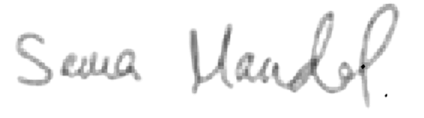 Sema Mandal.